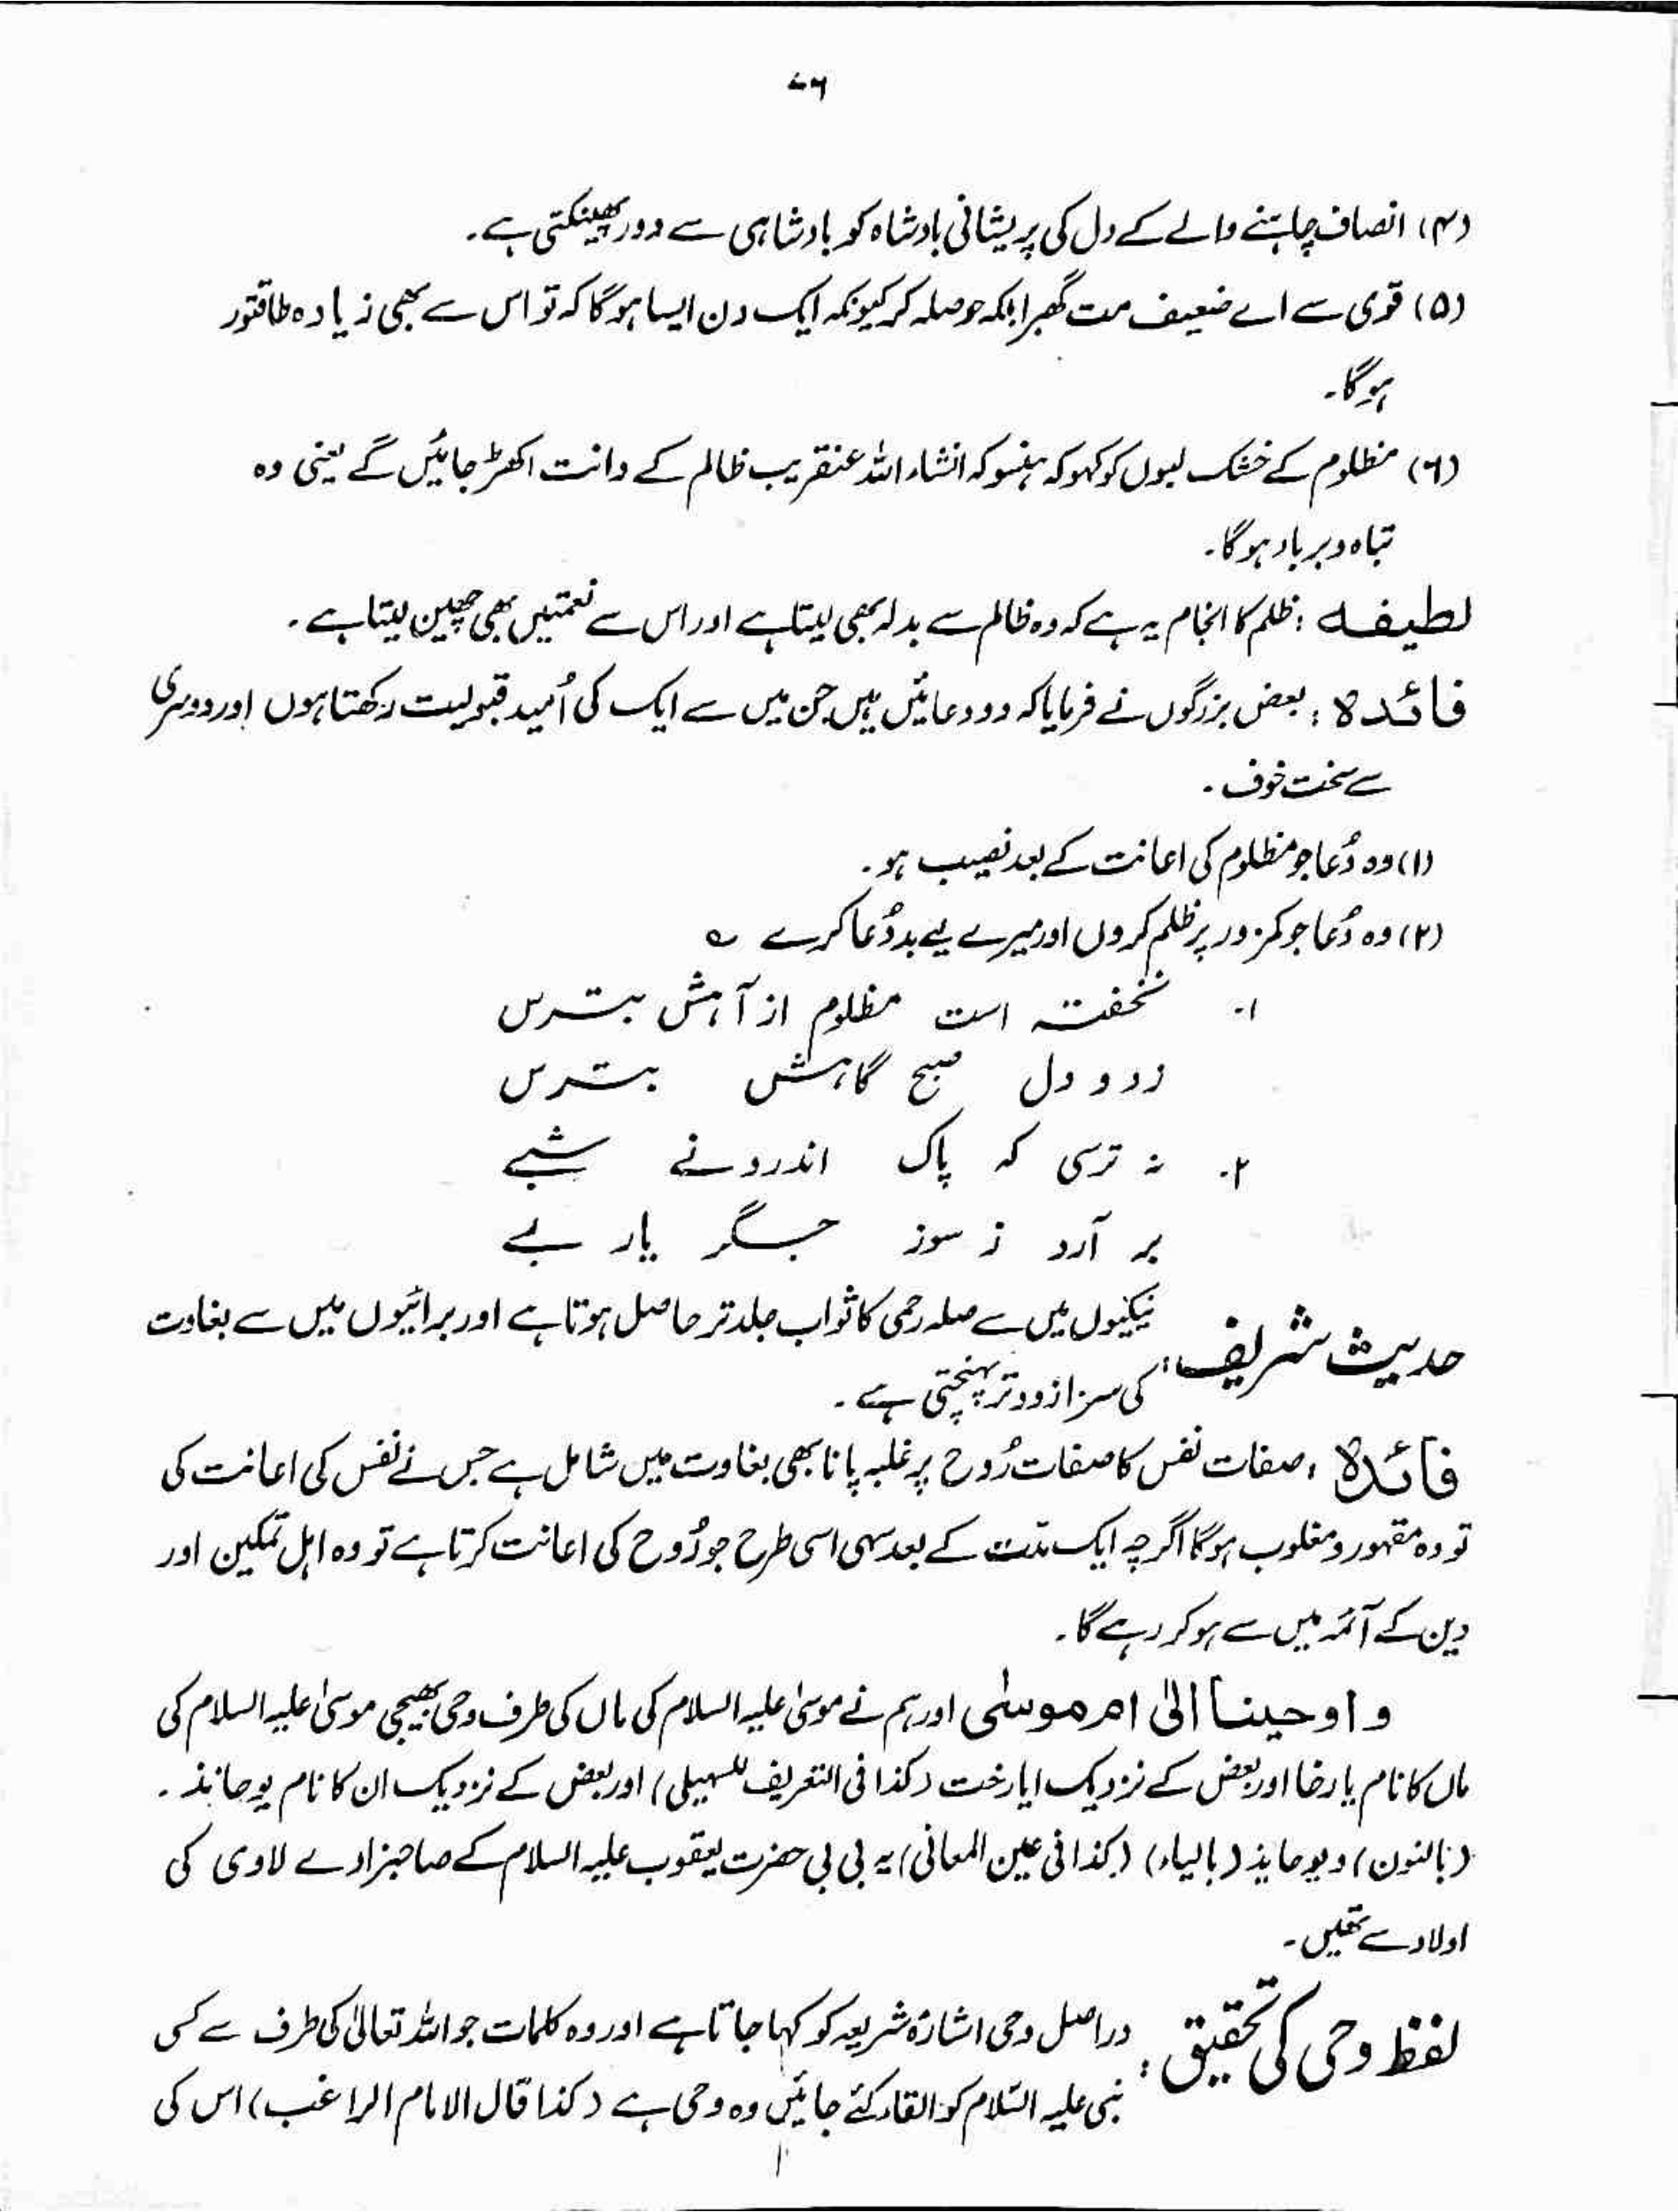 ۷۶
(۴) انصاف چاہنے والے کے دل کی پریشانی بادشاہ کو بادشاہی سے دور پھینکتی ہے۔
(۵) قوی سے اے ضعیف مت گھبرا بلکہ حوصلہ کر کیونکہ ایک دن ایسا ہوگا کہ تو اس سے بھی زیادہ طاقتور
ہوگا۔
(۶) مظلوم کے خشک لبوں کو کہو کہ ہنسو کہ انشاء اللہ عنقریب ظالم کے دانت اکھڑ جائیں گے یعنی وہ
تباہ و برباد ہوگا۔
لطیفہ : ظلم کا انجام یہ ہے کہ وہ ظالم سے بدلہ بھی لیتا ہے اور اس سے نعمتیں بھی چھین لیتا ہے۔
فائدہ : بعض بزرگوں نے فرمایا کہ دو دعائیں ہیں جن میں سے ایک کی اُمید قبولیت رکھتا ہوں اور دوسری
سے سخت خوف۔
(۱) وہ دُعا جو مظلوم کی اعانت کے بعد نصیب ہو۔
(۲) وہ دُعا جو کمزور پر ظلم کروں اور میرے لیے بددُعا کرے ؎
۱۔ نخفتہ است مظلوم از آہش بترس
زدود دل صبح گاہش بترس
۲۔ نہ ترسی کہ پاک اندرونے شبے
بر آرد ز سوز جگر یار بے
حدیث شریف : نیکیوں میں سے صلہ رحمی کا ثواب جلد تر حاصل ہوتا ہے اور برائیوں میں سے بغاوت
کی سزا زود تر پہنچتی ہے۔
فائدہ : صفات نفس کا صفات رُوح پر غلبہ پانا بھی بغاوت میں شامل ہے جس نے نفس کی اعانت کی
تو وہ مقہور و مغلوب ہوگا اگرچہ ایک مدّت کے بعد سہی اسی طرح جو رُوح کی اعانت کرتا ہے تو وہ اہل تمکین اور
دین کے آئمہ میں سے ہو کر رہے گا۔
و اوحینا الیٰ ام موسٰی اور ہم نے موسیٰ علیہ السلام کی ماں کی طرف وحی بھیجی موسیٰ علیہ السلام کی
ماں کا نام یارخا اور بعض کے نزدیک ایارخت (کذا فی التعریف للسہیلی) اور بعض کے نزدیک ان کا نام یوحانذ۔
(بالنون) و یوحایذ (بالیاء) (کذا فی عین المعانی) یہ بی بی حضرت یعقوب علیہ السلام کے صاحبزادے لاوی کی
اولاد سے تھیں۔
لفظ وحی کی تحقیق : دراصل وحی اشارۂ شریعہ کو کہا جاتا ہے اور وہ کلمات جو اللہ تعالیٰ کی طرف سے کسی
نبی علیہ السّلام کو القاء کئے جائیں وہ وحی ہے (کذا قال الامام الراغب) اس کی